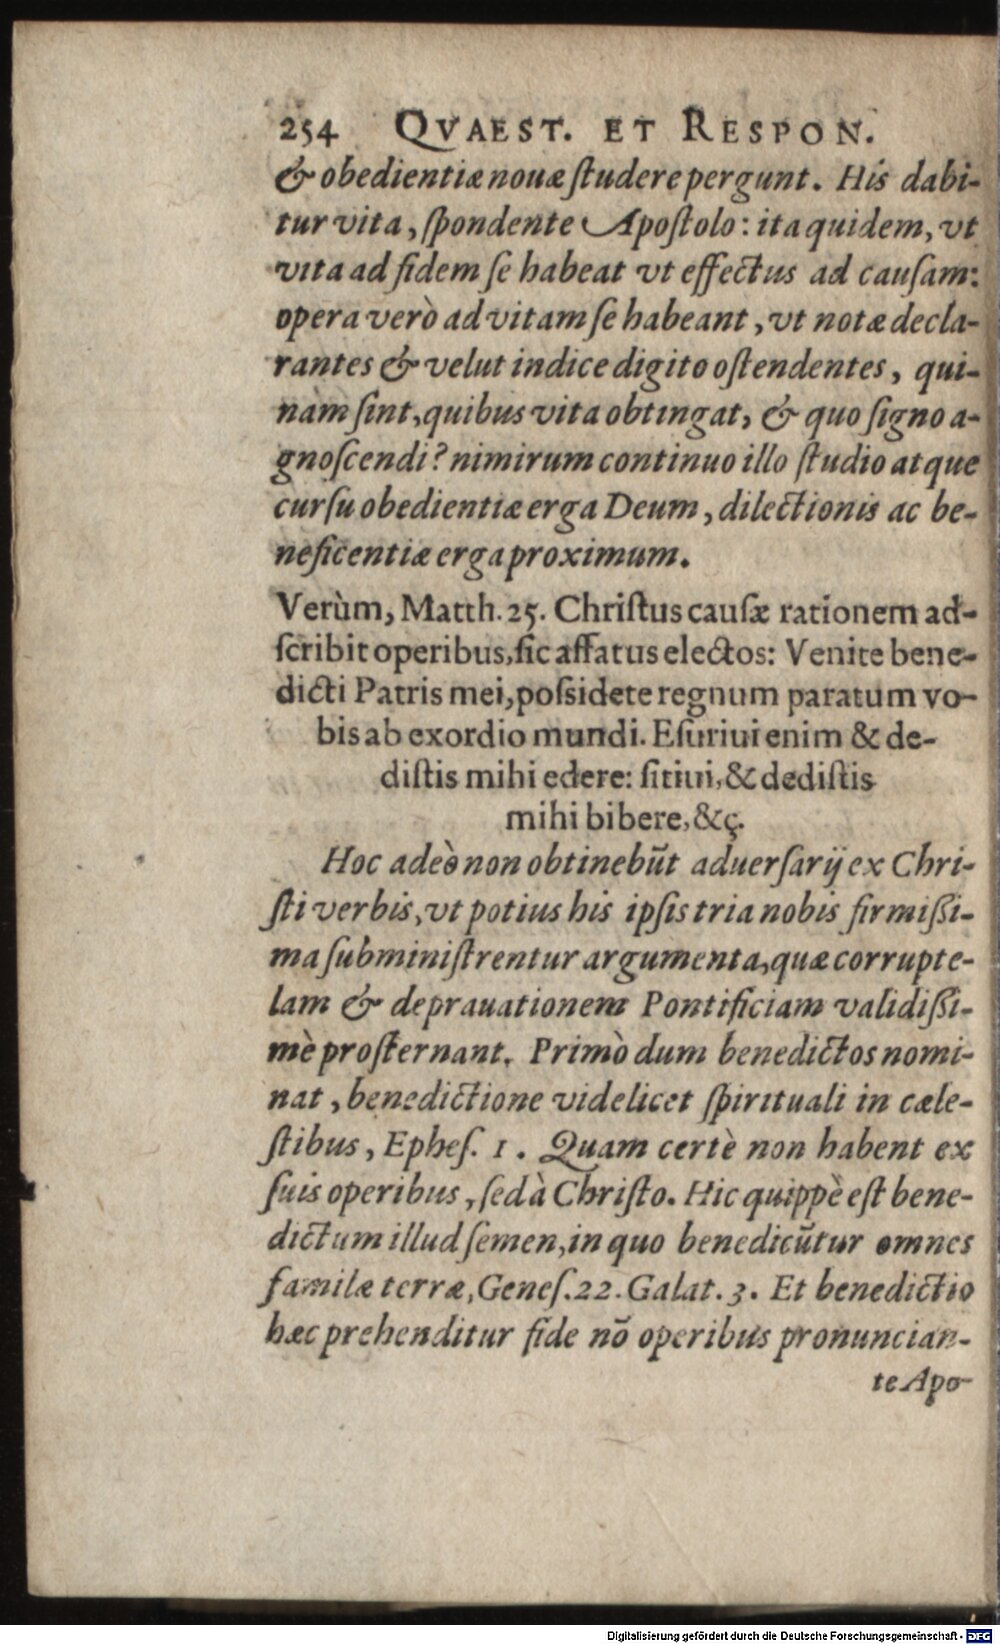 254 QVAEST. ET RESPON.
& obedientiæ nouæ ſtudere pergunt. His dabi-
tur vita, ſpondente Apoſtolo: ita quidem, vt
vita ad fidem ſe habeat vt effectus ad cauſam:
opera verò ad vitam ſe habeant, vt notæ decla-
rantes & velut indice digito oſtendentes, qui-
nam ſint, quibus vita obtingat, & quo ſigno a-
gnoſcendi? nimirum continuo illo ſtudio atque
curſu obedientiæ erga Deum, dilectionis ac be-
neficentiæ erga proximum.
Verùm, Matth. 25. Chriſtus cauſæ rationem ad-
ſcribit operibus, ſic affatus electos: Venite bene-
dicti Patris mei, poſsidete regnum paratum vo-
bis ab exordio mundi. Eſuriui enim & de-
diſtis mihi edere: ſitiui, & dediſtis
mihi bibere, &ç.
Hoc adeò non obtinebūt aduerſarij ex Chri-
ſti verbis, vt potius his ipſis tria nobis firmißi-
ma ſubminiſtrentur argumenta, quæ corrupte-
lam & deprauationem Pontificiam validißi-
mè proſternant. Primò dum benedictos nomi-
nat, benedictione videlicet ſpirituali in cæle-
ſtibus, Epheſ. 1. Quam certè non habent ex
ſuis operibus, ſed à Chriſto. Hic quippè eſt bene-
dictum illud ſemen, in quo benedicūtur omnes
familæ terræ, Geneſ. 22. Galat. 3. Et benedictio
hæc prehenditur fide nō operibus pronuncian-
te Apo-
Digitalisierung gefördert durch die Deutsche Forschungsgemeinschaft - DFG